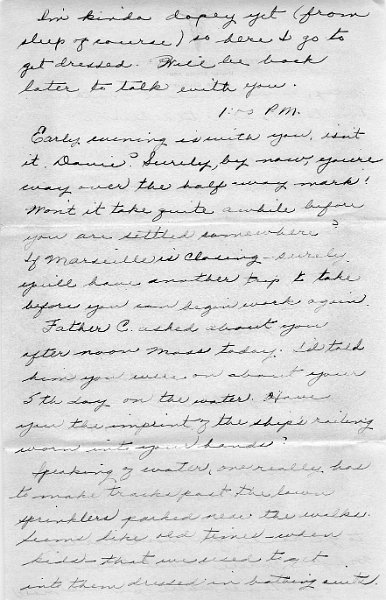 I'm kinda dopey yet (from
sleep of course) so here I go to
get dressed. Will be back
later to talk with you.
1:00 P.M.
Early evening is with you, isn't
it, Davie? Surely, by now, you're
way over the half way mark!
Won't it take quite awhile before
you are settled somewhere?
If Marseille is closing - surely
you'll have another trip to take
before you can begin work again.
Father C. asked about you
after noon Mass today. I'd told
him you were on about your
5th day on the water. Have
you the imprint of the ship's railing
worn into your hands?
Speaking of water, one really has
to make tracks past the lawn
sprinklers parked near the walks.
Seems like old times - when
kids - that we used to get
into them dressed in bathing suits.